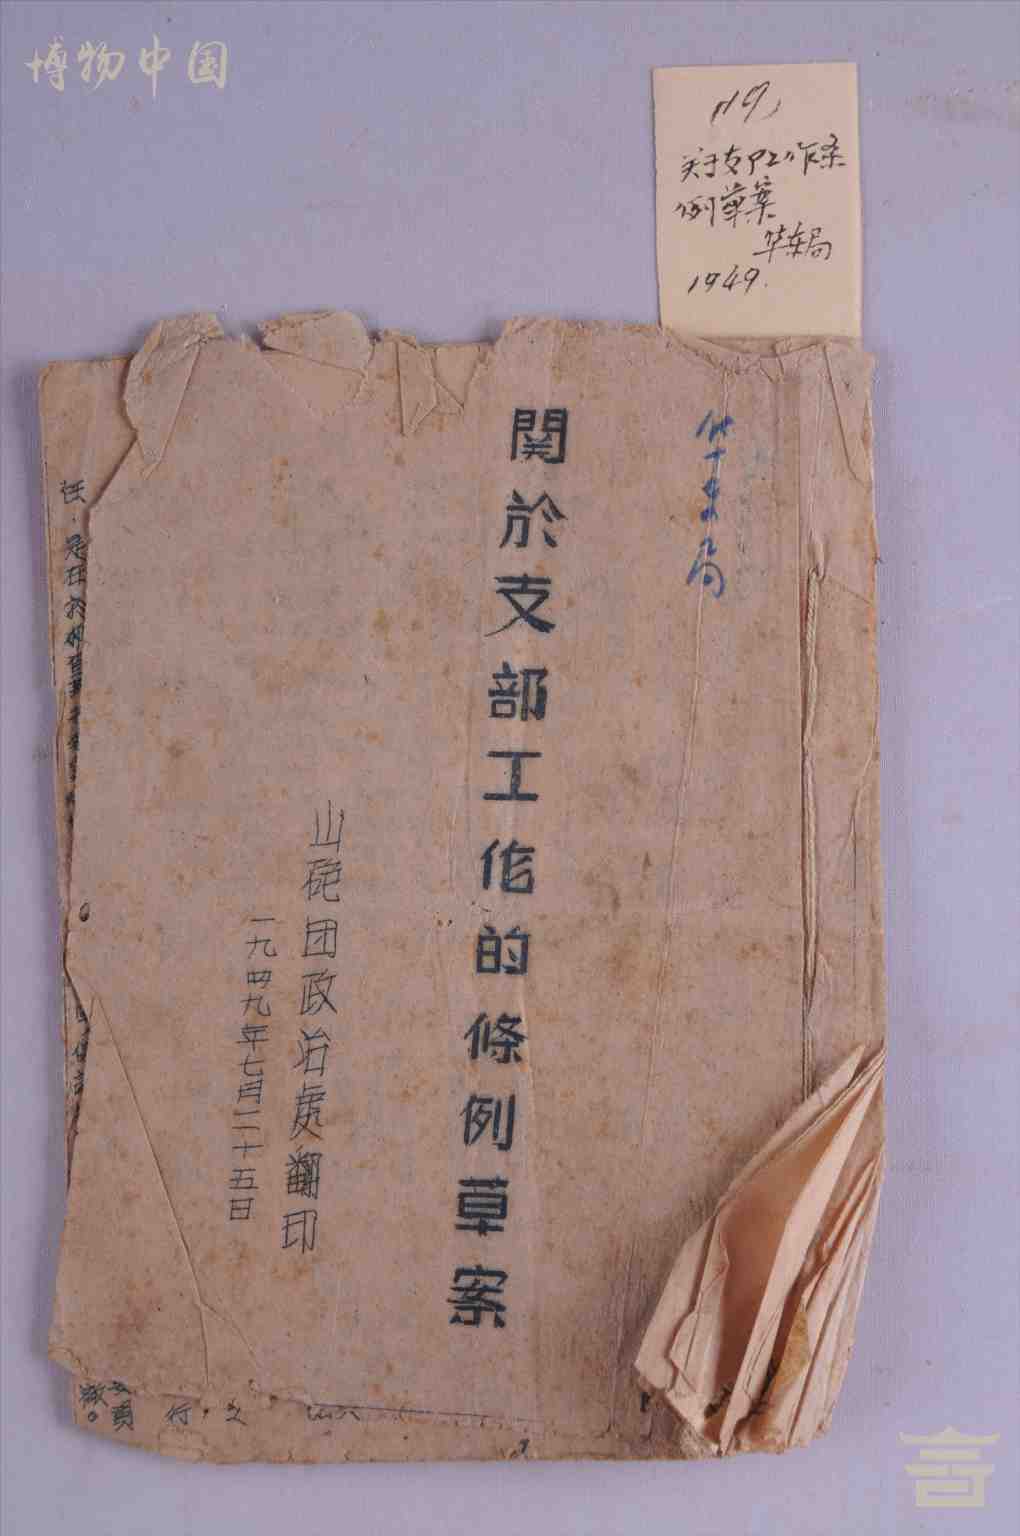 博物中国
(19)
关于支部工作条
例草案
华东局
1949.
华东局
関於支部工作的條例草案
山砲团政治处翻印
一九四九年七月二十五日